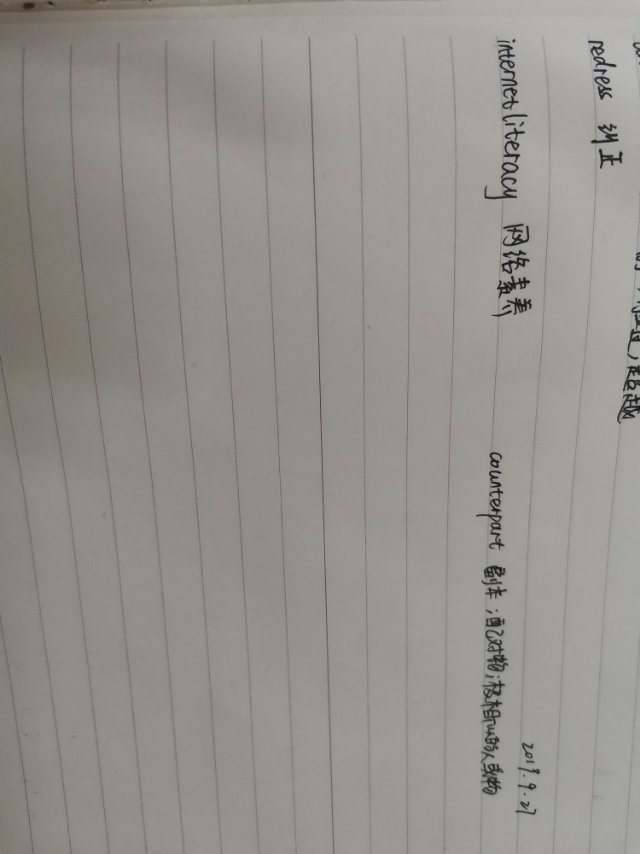 超越
redress 纠正
2019.9.27
internet literacy 网络素养 counterpart 副本;配对物;极相似的人或物